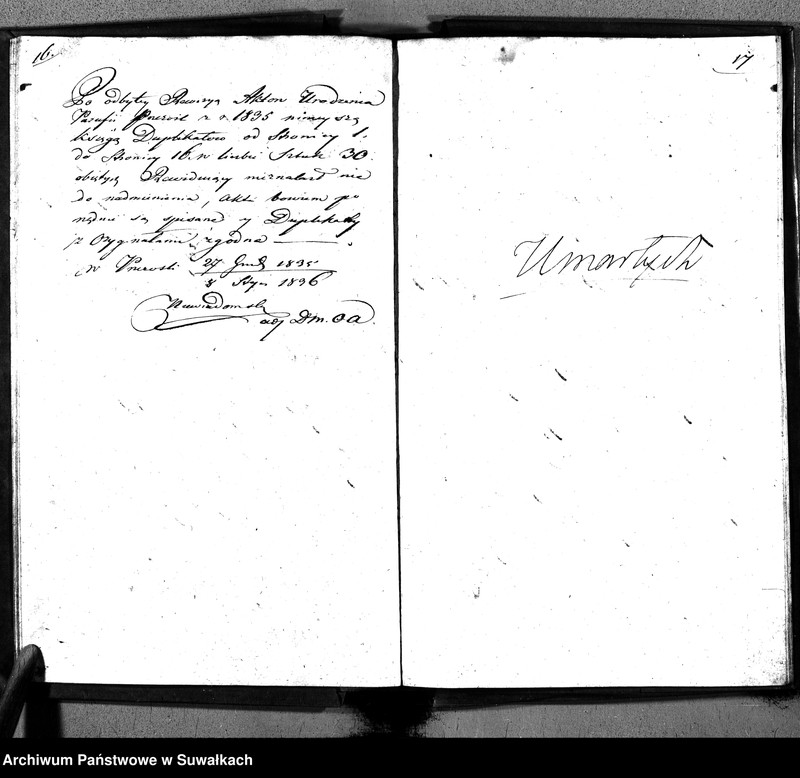 16.
Po odbytey Rewizyi Aktow Urodzenia
Parafii Przerośl z r. 1835 ninieyszą
księgą Duplikatow od Stronicy 1.
do Stronicy 16. w liczbie Sztuk 30.
obiętych Rewiduiący nieznalazł nic
do nadmienienia, akta bowiem po
rządnie są spisane y Duplikaty
z Oryginałami zgodne
w Przerośli 27 Grud. 1835
8 Stycz. 1836
17
Umarłych
Archiwum Państwowe w Suwałkach